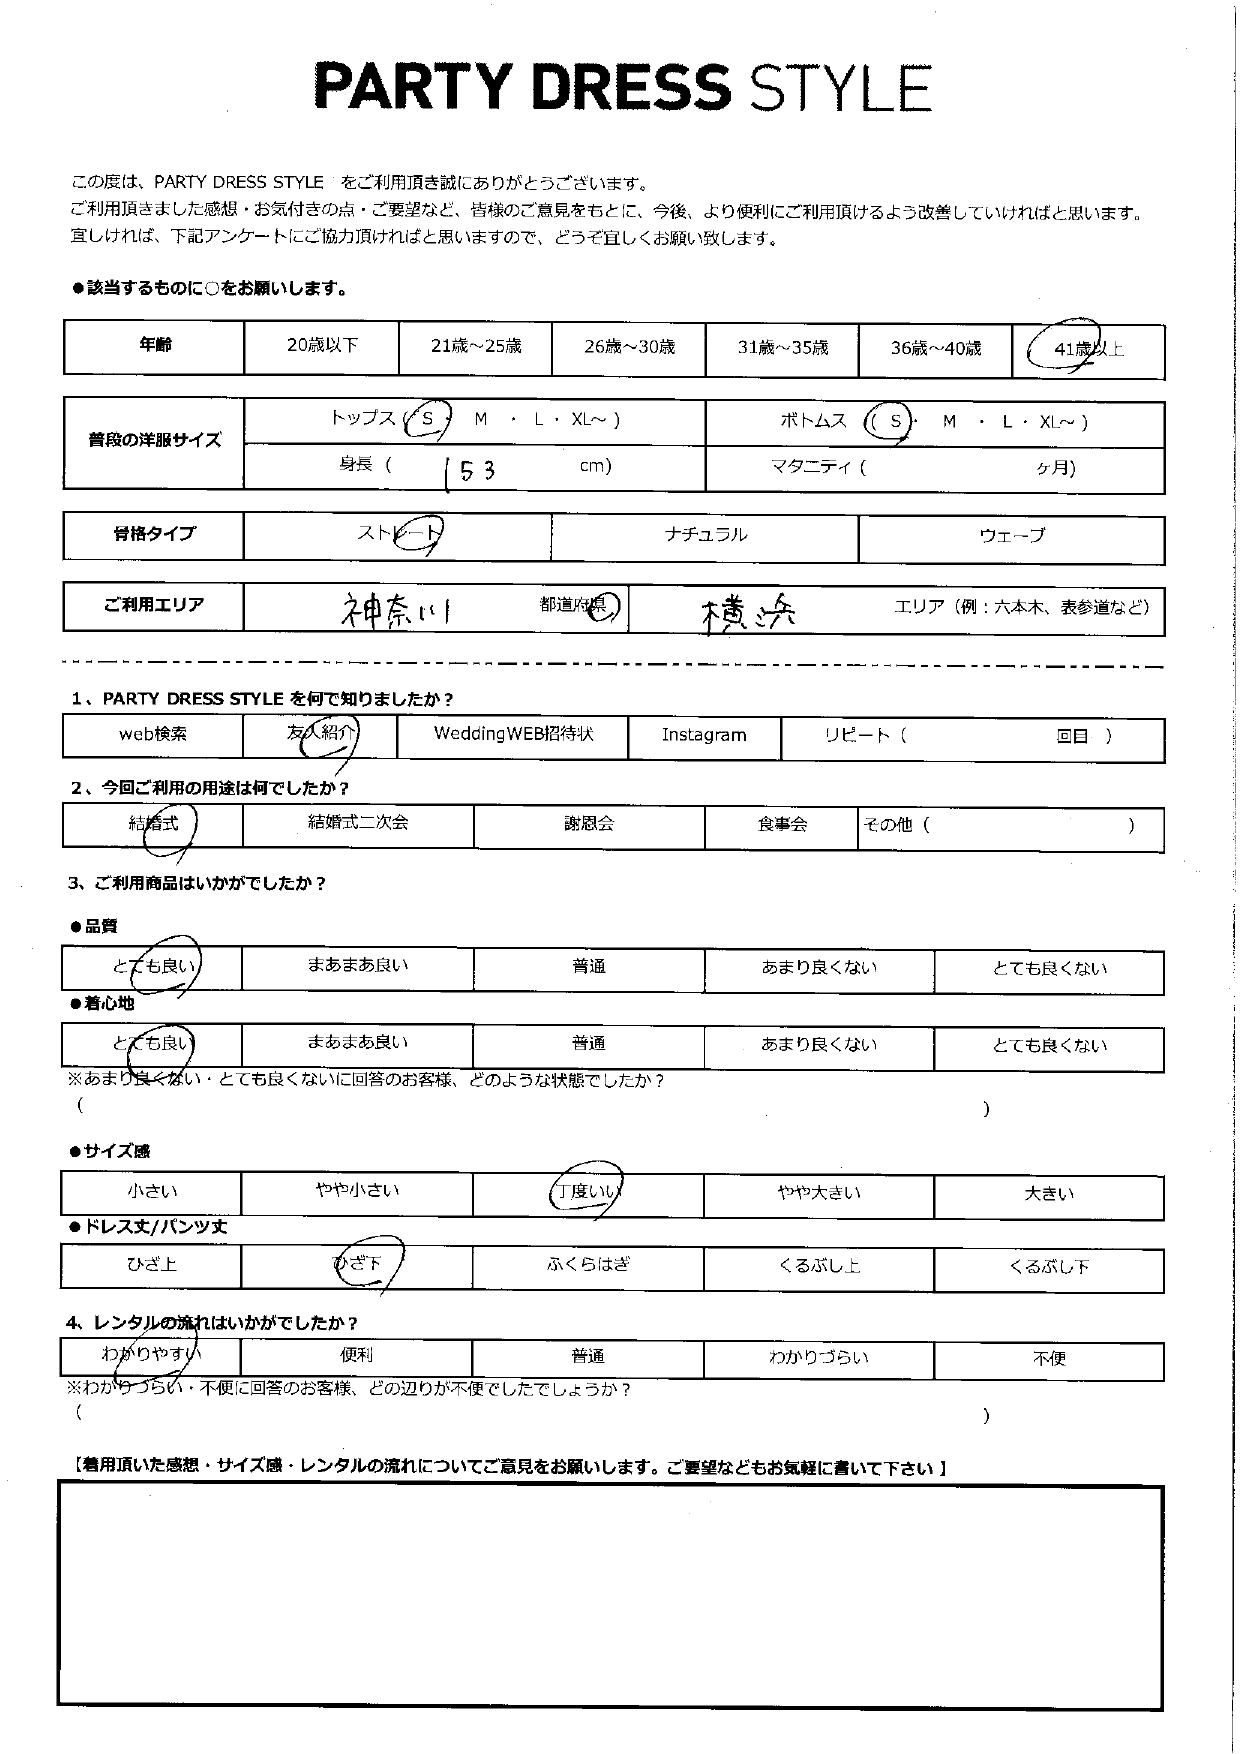 PARTY DRESS STYLE
この度は、PARTY DRESS STYLE をご利用頂き誠にありがとうございます。
ご利用頂きました感想・お気付きの点・ご要望など、皆様のご意見をもとに、今後、より便利にご利用頂けるよう改善していければと思います。
宜しければ、下記アンケートにご協力頂ければと思いますので、どうぞ宜しくお願い致します。
●該当するものに○をお願いします。
年齢 20歳以下 21歳～25歳 26歳～30歳 31歳～35歳 36歳～40歳 41歳以上
普段の洋服サイズ トップス ( S ・ M ・ L ・ XL～ ) ボトムス ( S ・ M ・ L ・ XL～ )
身長 ( 153 cm) マタニティ ( ヶ月)
骨格タイプ ストレート ナチュラル ウェーブ
ご利用エリア 神奈川 都道府県 横浜 エリア（例：六本木、表参道など）
1、PARTY DRESS STYLE を何で知りましたか？
web検索 友人紹介 WeddingWEB招待状 Instagram リピート ( 回目 )
2、今回ご利用の用途は何でしたか？
結婚式 結婚式二次会 謝恩会 食事会 その他 ( )
3、ご利用商品はいかがでしたか？
●品質
とても良い まあまあ良い 普通 あまり良くない とても良くない
●着心地
とても良い まあまあ良い 普通 あまり良くない とても良くない
※あまり良くない・とても良くないに回答のお客様、どのような状態でしたか？
( )
●サイズ感
小さい やや小さい 丁度いい やや大きい 大きい
●ドレス丈/パンツ丈
ひざ上 ひざ下 ふくらはぎ くるぶし上 くるぶし下
4、レンタルの流れはいかがでしたか？
わかりやすい 便利 普通 わかりづらい 不便
※わかりづらい・不便に回答のお客様、どの辺りが不便でしたでしょうか？
( )
【着用頂いた感想・サイズ感・レンタルの流れについてご意見をお願いします。ご要望などもお気軽に書いて下さい】